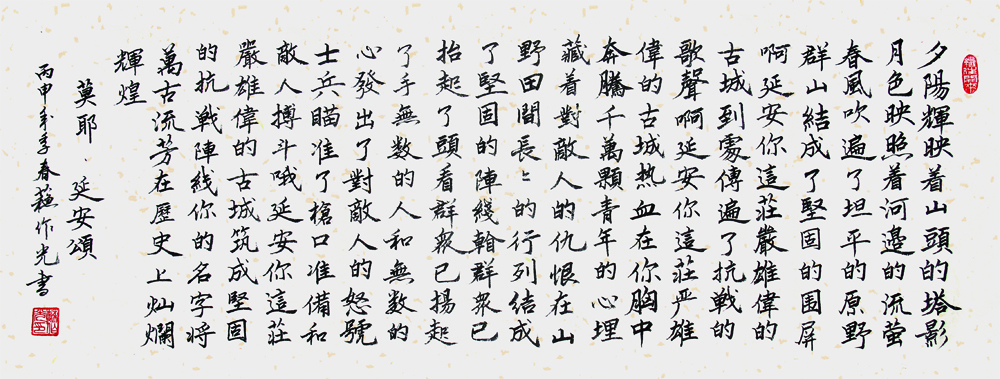 夕陽輝映着山頭的塔影
月色映照着河邊的流螢
春風吹遍了坦平的原野
群山結成了堅固的围屏
啊延安你這莊嚴雄偉的
古城到處傳遍了抗戰的
歌聲啊延安你這莊严雄
偉的古城热血在你胸中
奔騰千萬顆青年的心埋
藏着對敵人的仇恨在山
野田間長〻的行列結成
了堅固的陣綫群衆已
抬起了頭看群衆已揚起
了手無数的人和無数的
心發出了對敵人的怒號
士兵瞄准了槍口准備和
敵人搏斗哦延安你這莊
嚴雄偉的古城筑成堅固
的抗戰陣线你的名字將
萬古流芳在歷史上灿爛
輝煌
莫耶.延安頌
丙申年季春蘓作光書